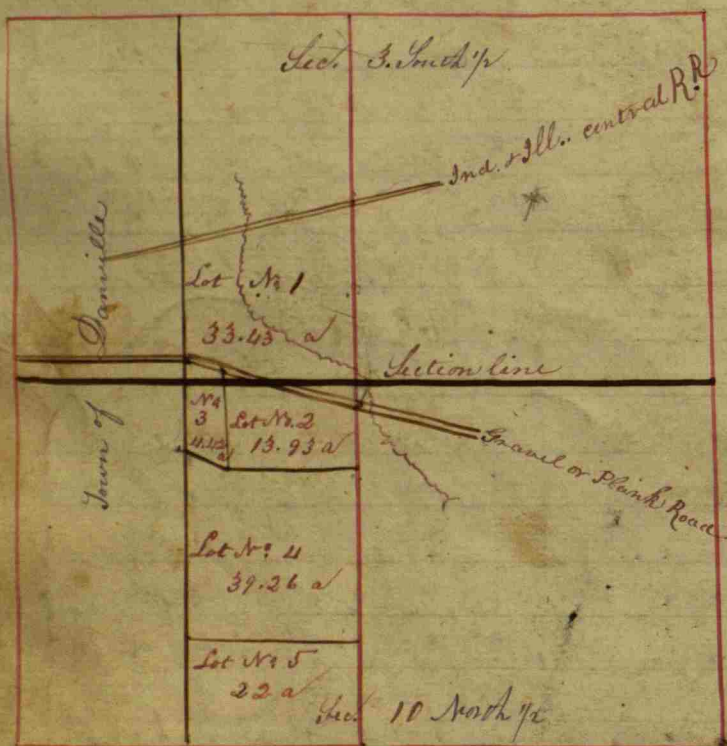 Sec. 3. South 1/2
Ind. & Ill.. central R.R
Town of Danville
Lot No 1
33.43 a
Section line
No
3
4.42
a
Lot No. 2
13.93 a
Gravel or Plank Road
Lot No. 4
39.26 a
Lot No 5
22 a
Sec. 10 North 1/2